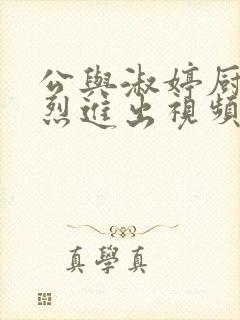 公與淑婷厨
烈進出視頻
真學真